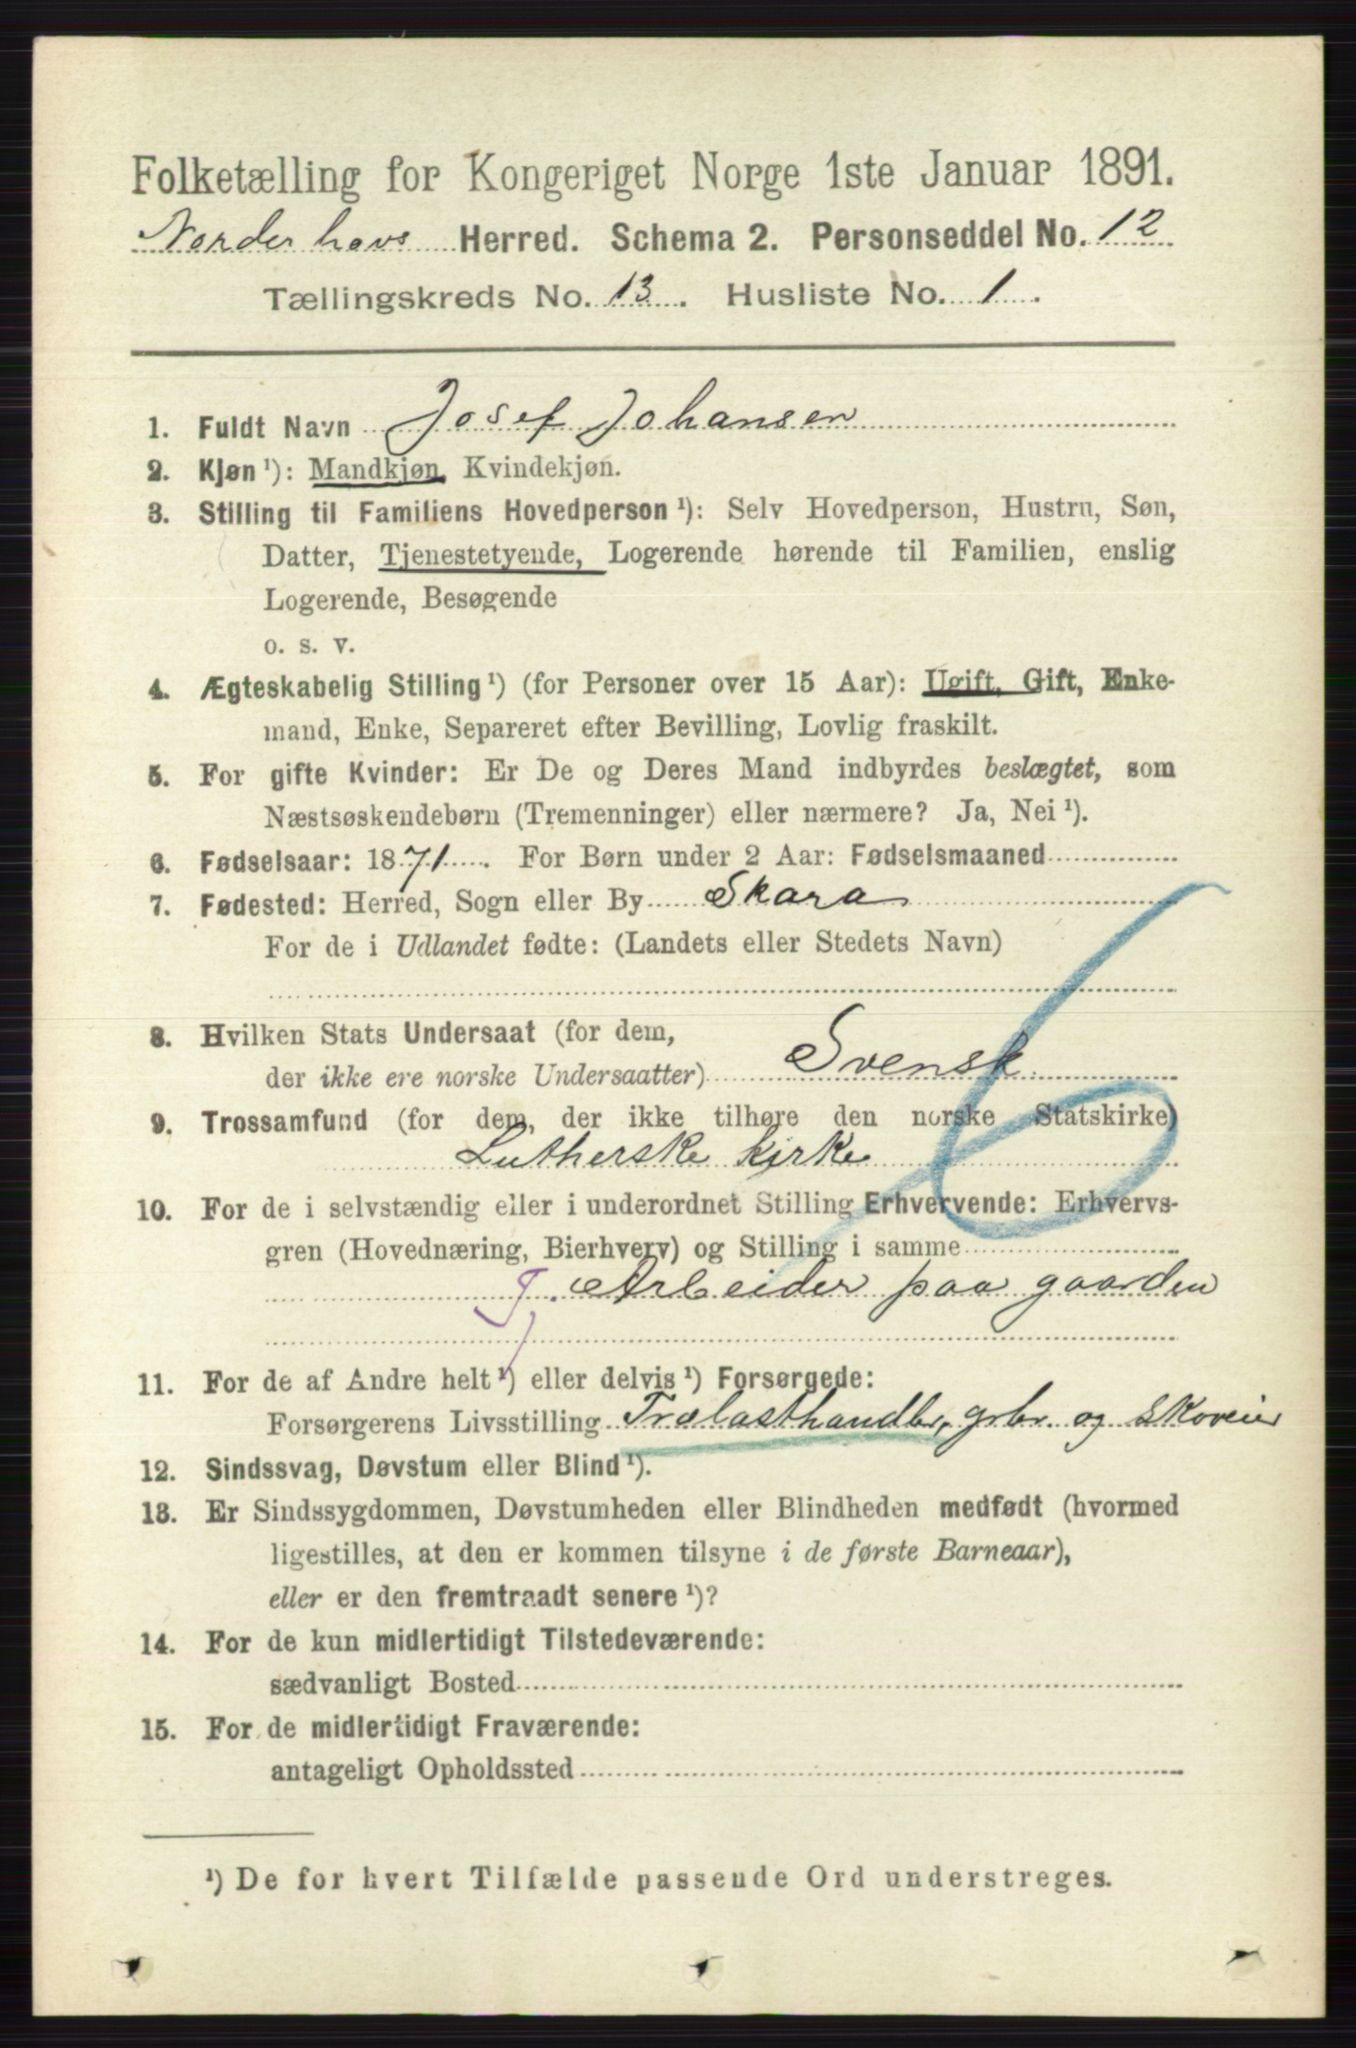 Folketælling for Kongeriget Norge 1ste Januar 1891.
Norderhovs Herred. Schema 2. Personseddel No. 12
Tællingskreds No. 13. Husliste No. 1.
1. Fuldt Navn Josef Johansen
2. Kjøn ¹): Mandkjøn, Kvindekjøn.
3. Stilling til Familiens Hovedperson ¹): Selv Hovedperson, Hustru, Søn,
Datter, Tjenestetyende, Logerende hørende til Familien, enslig
Logerende, Besøgende
o. s. v.
4. Ægteskabelig Stilling ¹) (for Personer over 15 Aar): Ugift, Gift, Enke-
mand, Enke, Separeret efter Bevilling, Lovlig fraskilt.
5. For gifte Kvinder: Er De og Deres Mand indbyrdes beslægtet, som
Næstsøskendebørn (Tremenninger) eller nærmere? Ja, Nei ¹).
6. Fødselsaar: 1871. For Børn under 2 Aar: Fødselsmaaned
7. Fødested: Herred, Sogn eller By Skara
For de i Udlandet fødte: (Landets eller Stedets Navn)
8. Hvilken Stats Undersaat (for dem,
der ikke ere norske Undersaatter) Svensk
9. Trossamfund (for dem, der ikke tilhøre den norske Statskirke)
Lutherske kirke
10. For de i selvstændig eller i underordnet Stilling Erhvervende: Erhvervs-
gren (Hovednæring, Bierhverv) og Stilling i samme
Tj. Arbeider paa gaarden
11. For de af Andre helt ¹) eller delvis ¹) Forsørgede:
Forsørgerens Livsstilling Trælasthandler, grbr. og skoveier
12. Sindssvag, Døvstum eller Blind ¹).
13. Er Sindssygdommen, Døvstumheden eller Blindheden medfødt (hvormed
ligestilles, at den er kommen tilsyne i de første Barneaar),
eller er den fremtraadt senere ¹)?
14. For de kun midlertidigt Tilstedeværende:
sædvanligt Bosted
15. For de midlertidigt Fraværende:
antageligt Opholdssted
¹) De for hvert Tilfælde passende Ord understreges.